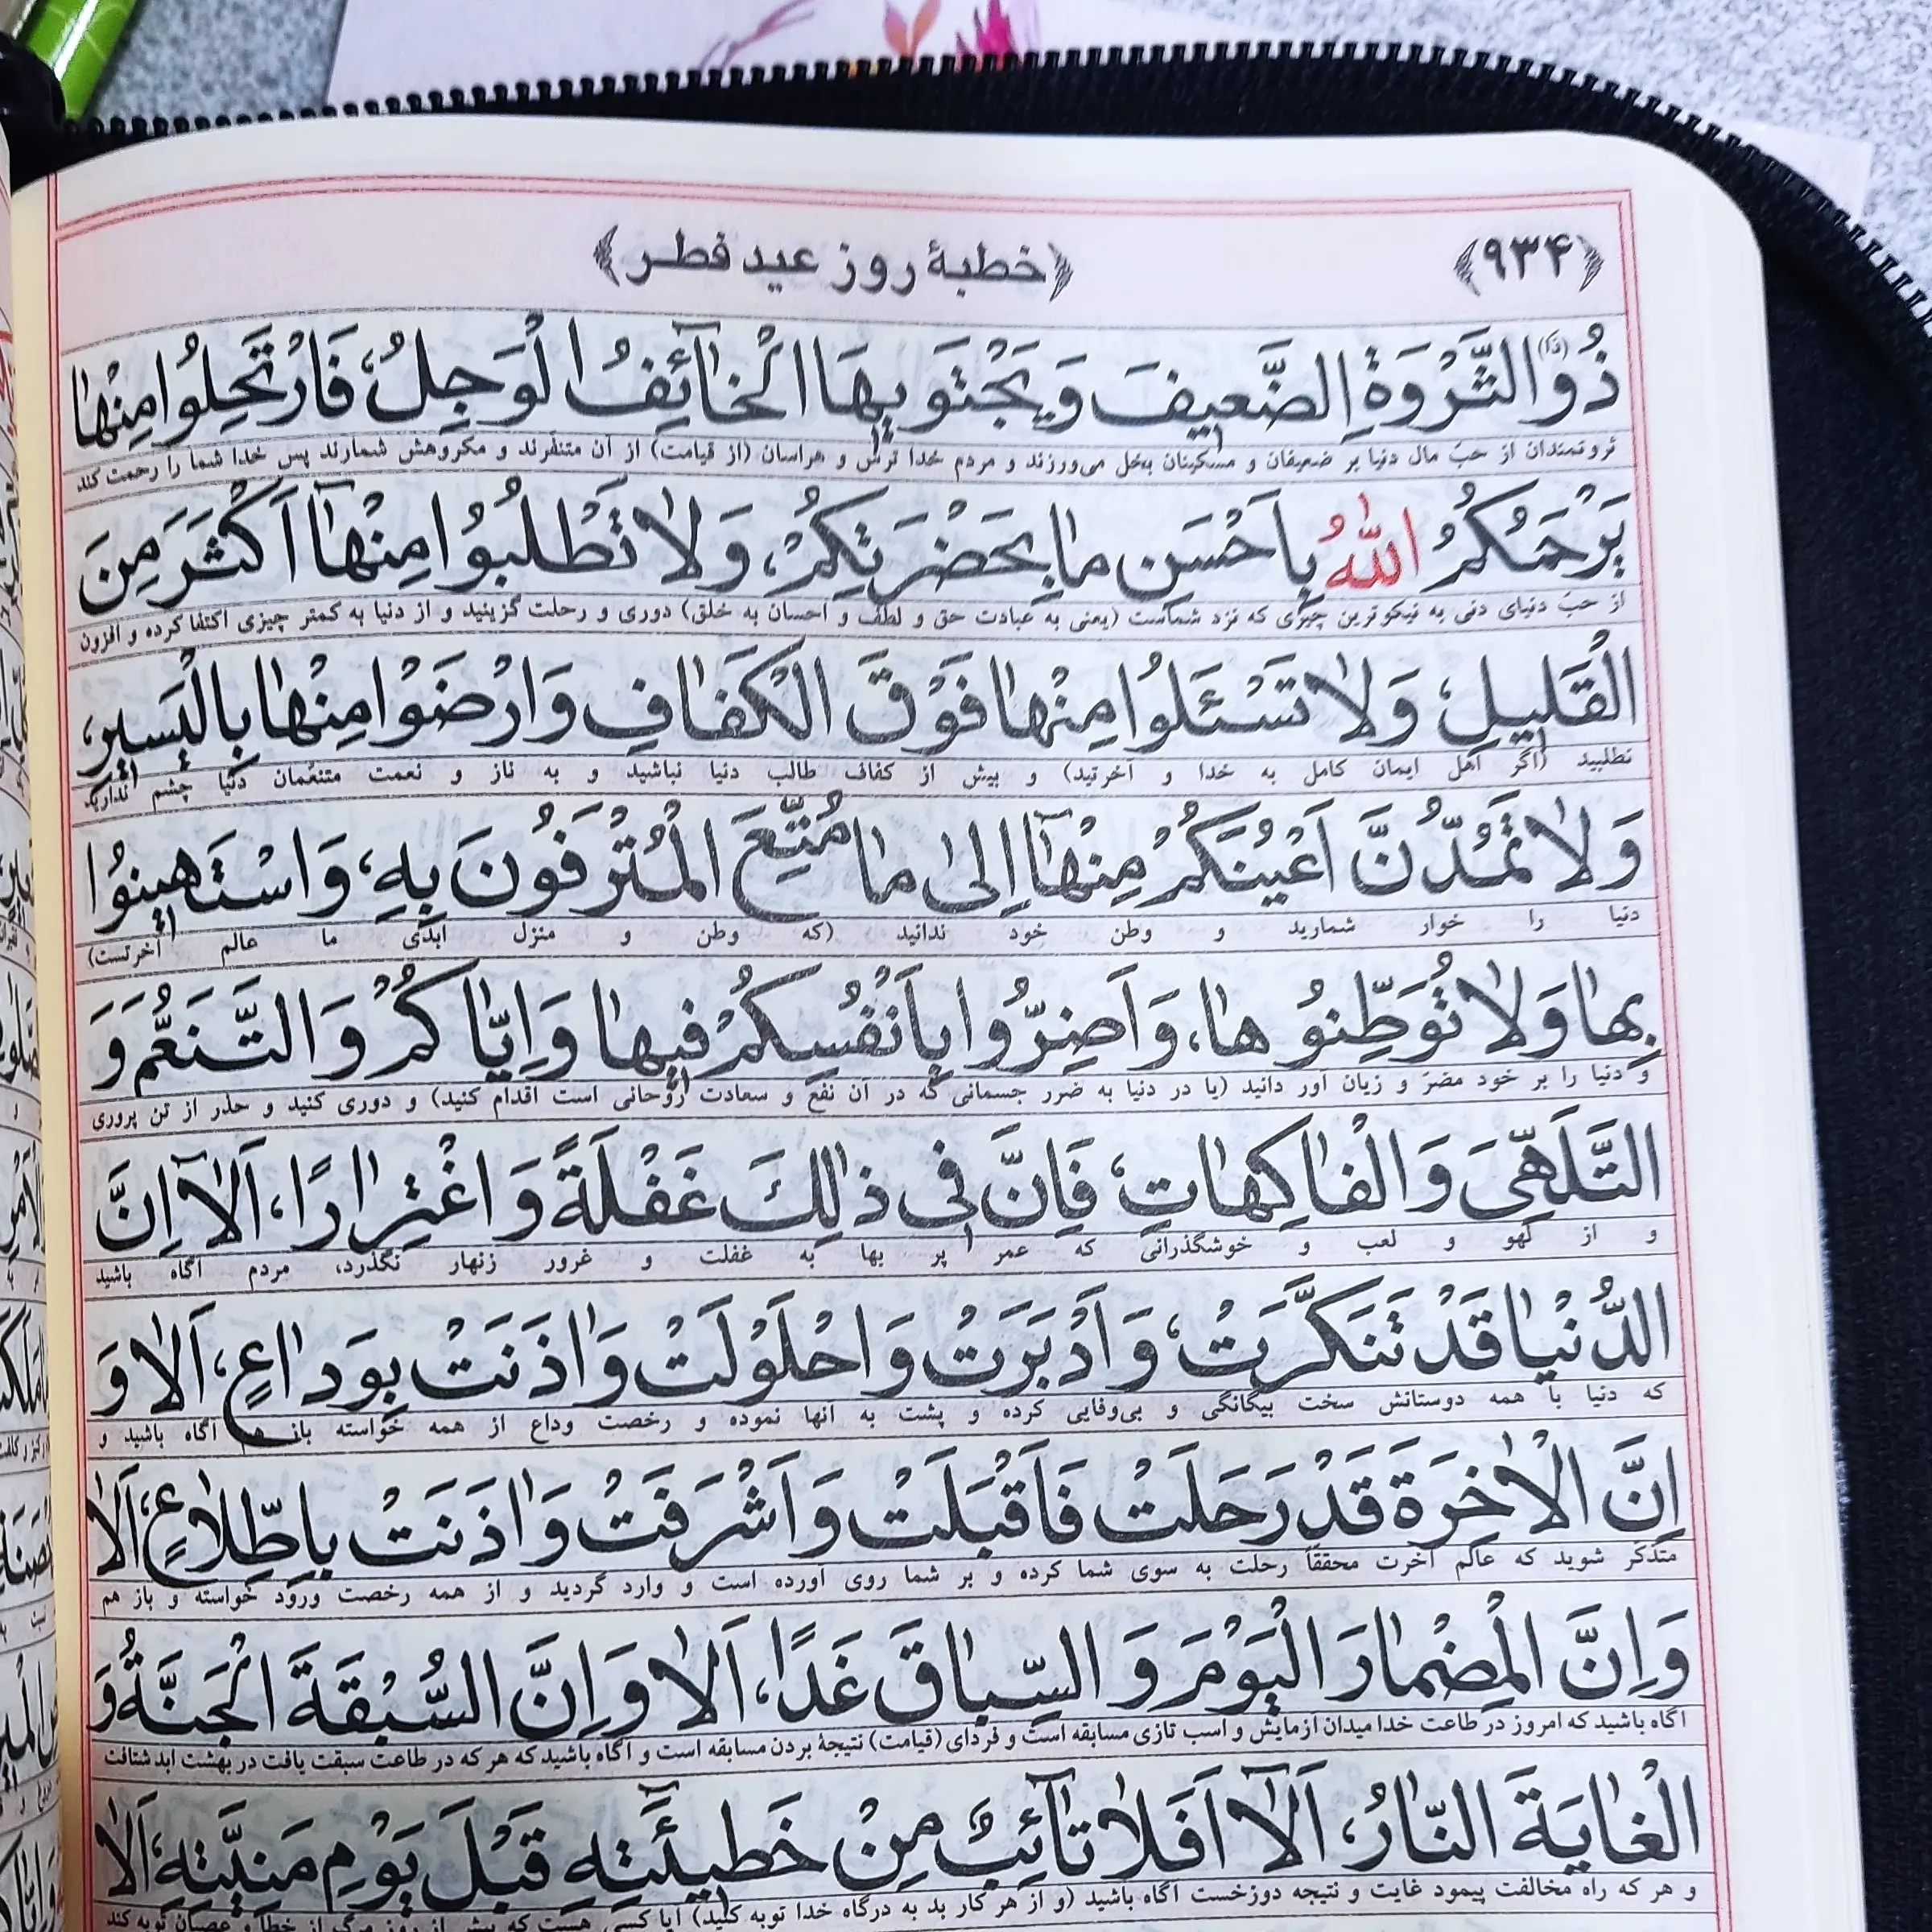 ﴿۹۳۴﴾ ﴿خطبهٔ روز عید فطر﴾
ذُو (ذَا) الثَّرْوَةِ الضَّعیفَ وَ یَجْتَویهَا الْخآئِفُ الْوَجِلُ، فَارْتَحِلُوا مِنْها
ثروتمندان از حبّ مال دنیا بر ضعیفان و مسکینان بخل می‌ورزند و مردم خدا ترس و هراسان (از قیامت) از آن متنفّرند و مکروهش شمارند پس خدا شما را رحمت کند
یَرْحَمُکُمُ اللّٰهُ بِاَحْسَنِ ما بِحَضْرَتِکُمْ، وَلا تَطْلُبُوا مِنْهآ اَکْثَرَ مِنَ
از حبّ دنیای دنی به نیکوترین چیزی که نزد شماست (یعنی به عبادت حق و لطف و احسان به خلق) دوری و رحلت گزینید و از دنیا به کمتر چیزی اکتفا کرده و افزون
الْقَلیلِ، وَلا تَسْئَلُوا مِنْها فَوْقَ الْکَفافِ وَارْضَوْا مِنْها بِالْیَسیرِ،
نطلبید (اگر اهل ایمان کامل به خدا و آخرتید) و بیش از کفاف طالب دنیا نباشید و به ناز و نعمت متنعّمان دنیا چشم ندارید
وَلا تَمُدُّنَّ اَعْیُنَکُمْ مِنْهآ اِلی ما مُتِّعَ الْمُتْرَفُونَ بِهِ، وَاسْتَهینُوا
دنیا را خوار شمارید و وطن خود ندانید (که وطن و منزل ابدی ما عالم آخرتست)
بِها وَلا تُوَطِّنُوها، وَاَضِرُّوا بِاَنْفُسِکُمْ فیها وَاِیّاکُمْ وَالتَّنَعُّمَ وَ
و دنیا را بر خود مضرّ و زیان آور دانید (یا در دنیا به ضرر جسمانی که در آن نفع و سعادت روحانی است اقدام کنید) و دوری کنید و حذر از تن پروری
التَّلَهِّیَ وَالْفاکِهاتِ، فَاِنَّ فی ذٰلِکَ غَفْلَةً وَاغْتِرارًا، اَلآ اِنَّ
و از لهو و لعب و خوشگذرانی که عمر پر بها به غفلت و غرور زنهار نگذرد، مردم آگاه باشید
الدُّنْیا قَدْ تَنَکَّرَتْ، وَاَدْبَرَتْ وَاحْلَوْلَتْ وَاٰذَنَتْ بِوَداعٍ، اَلا وَ
که دنیا با همه دوستانش سخت بیگانگی و بی‌وفایی کرده و پشت به آنها نموده و رخصت وداع از همه خواسته باز هم آگاه باشید و
اِنَّ الْاٰخِرَةَ قَدْ رَحَلَتْ فَاَقْبَلَتْ وَاَشْرَفَتْ وَاٰذَنَتْ بِاطِّلاعٍ، اَلا
متذکّر شوید که عالم آخرت محققاً رحلت به سوی شما کرده و بر شما روی آورده است و وارد گردید و از همه رخصت ورود خواسته و باز هم
وَاِنَّ الْمِضْمارَ الْیَوْمَ وَالسِّباقَ غَدًا، اَلا وَاِنَّ السُّبْقَةَ الْجَنَّةُ وَ
آگاه باشید که امروز در طاعت خدا میدان آزمایش و اسب تازی مسابقه است و فردای (قیامت) نتیجهٔ بردن مسابقه است و آگاه باشید که هر که در طاعت سبقت یافت در بهشت ابد شتافت
الْغایَةَ النّارُ، اَلآ اَفَلا تآئِبٌ مِنْ خَطیٓئَتِهِ قَبْلَ یَوْمِ مَنِیَّتِهِ، اَلا
و هر که راه مخالفت پیمود غایت و نتیجه دوزخست آگاه باشید (و از هر کار بد به درگاه خدا توبه کنید) آیا کسی هست که پیش از روز مرگ از خطا و عصیان توبه کند